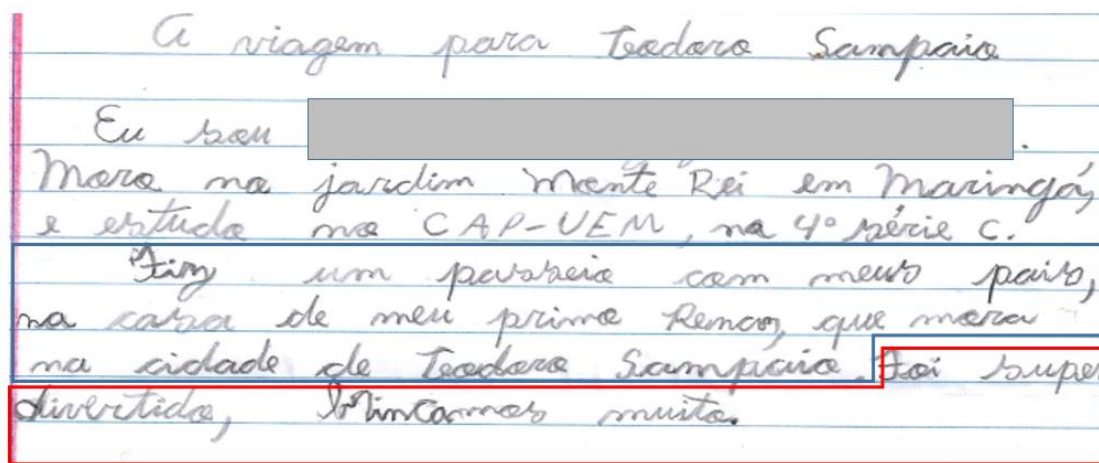 A viagem para Teodoro Sampaio
Eu sou
Moro no jardim Monte Rei em Maringá,
e estudo no CAP-UEM, na 4º série C.
Fiz um passeio com meus pais,
na casa de meu primo que mora
na cidade de Teodoro Sampaio. Foi super
divertido, brincamos muito.